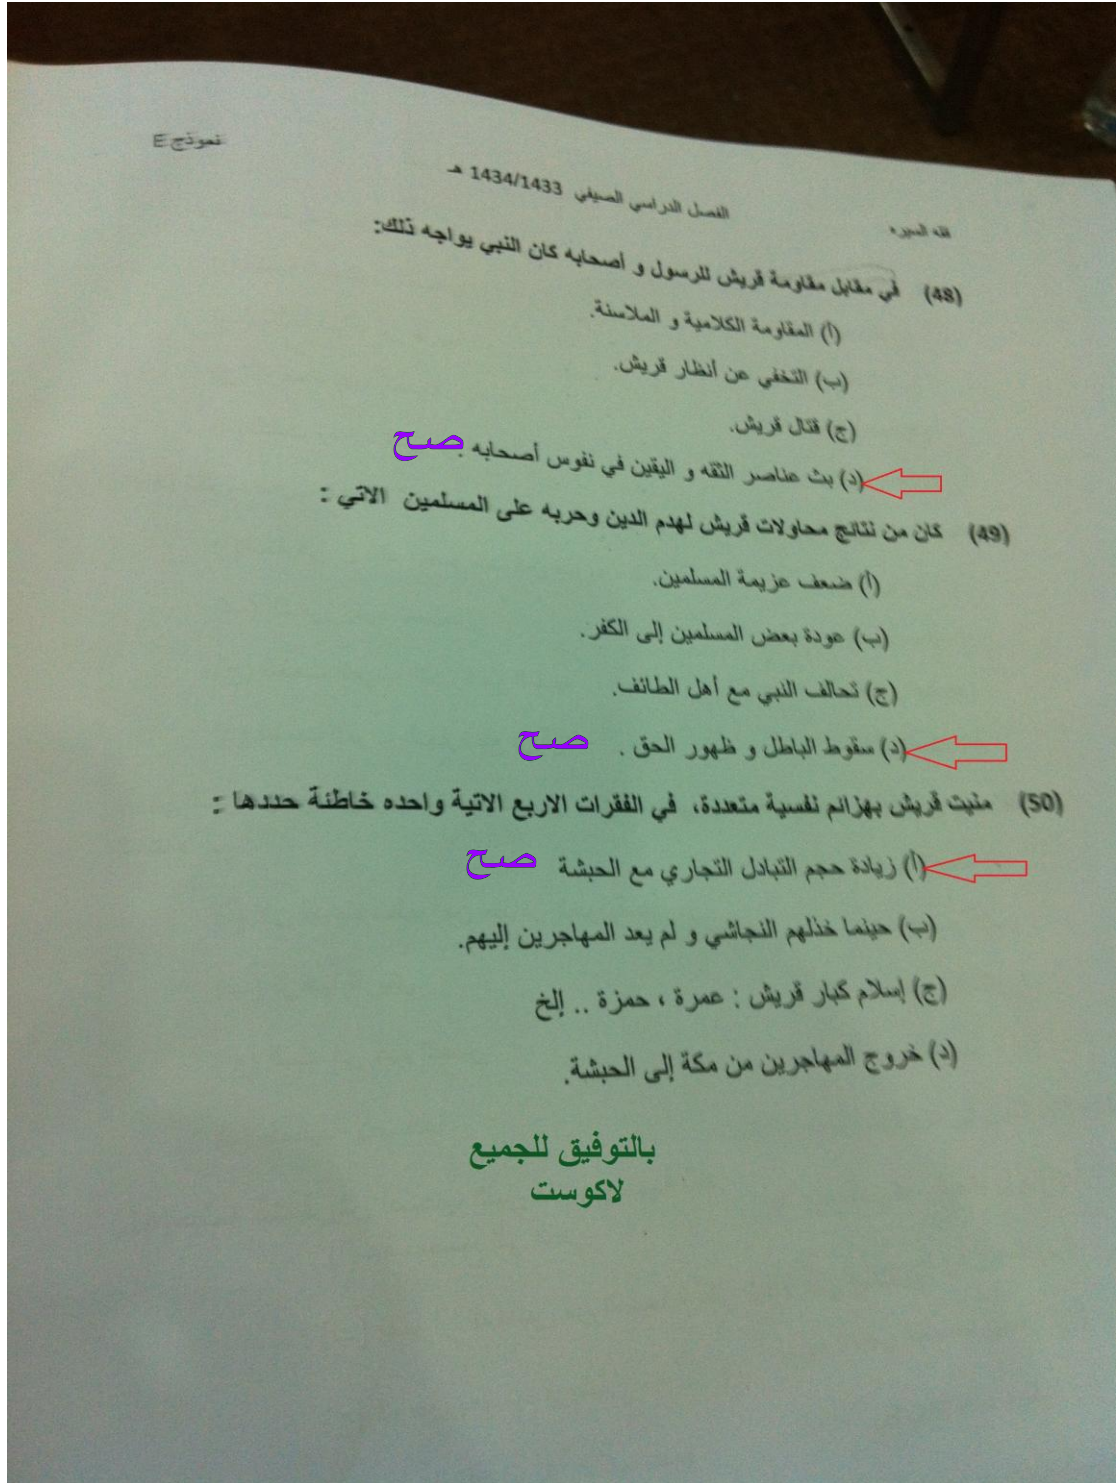 نموذج E
الفصل الدراسي الصيفي 1434/1433 هـ
فقه السيره
(48) في مقابل مقاومة قريش للرسول و أصحابه كان النبي يواجه ذلك:
(أ) المقاومة الكلامية و الملاسنة.
(ب) التخفي عن أنظار قريش.
(ج) قتال قريش.
(د) بث عناصر الثقه و اليقين في نفوس أصحابه . صح
(49) كان من نتائج محاولات قريش لهدم الدين وحربه على المسلمين الاتي :
(أ) ضعف عزيمة المسلمين.
(ب) عودة بعض المسلمين إلى الكفر.
(ج) تحالف النبي مع أهل الطائف.
(د) سقوط الباطل و ظهور الحق . صح
(50) منيت قريش بهزائم نفسية متعددة، في الفقرات الاربع الاتية واحده خاطئة حددها :
(أ) زيادة حجم التبادل التجاري مع الحبشة صح
(ب) حينما خذلهم النجاشي و لم يعد المهاجرين إليهم.
(ج) إسلام كبار قريش : عمرة ، حمزة .. إلخ
(د) خروج المهاجرين من مكة إلى الحبشة.
بالتوفيق للجميع
لاكوست